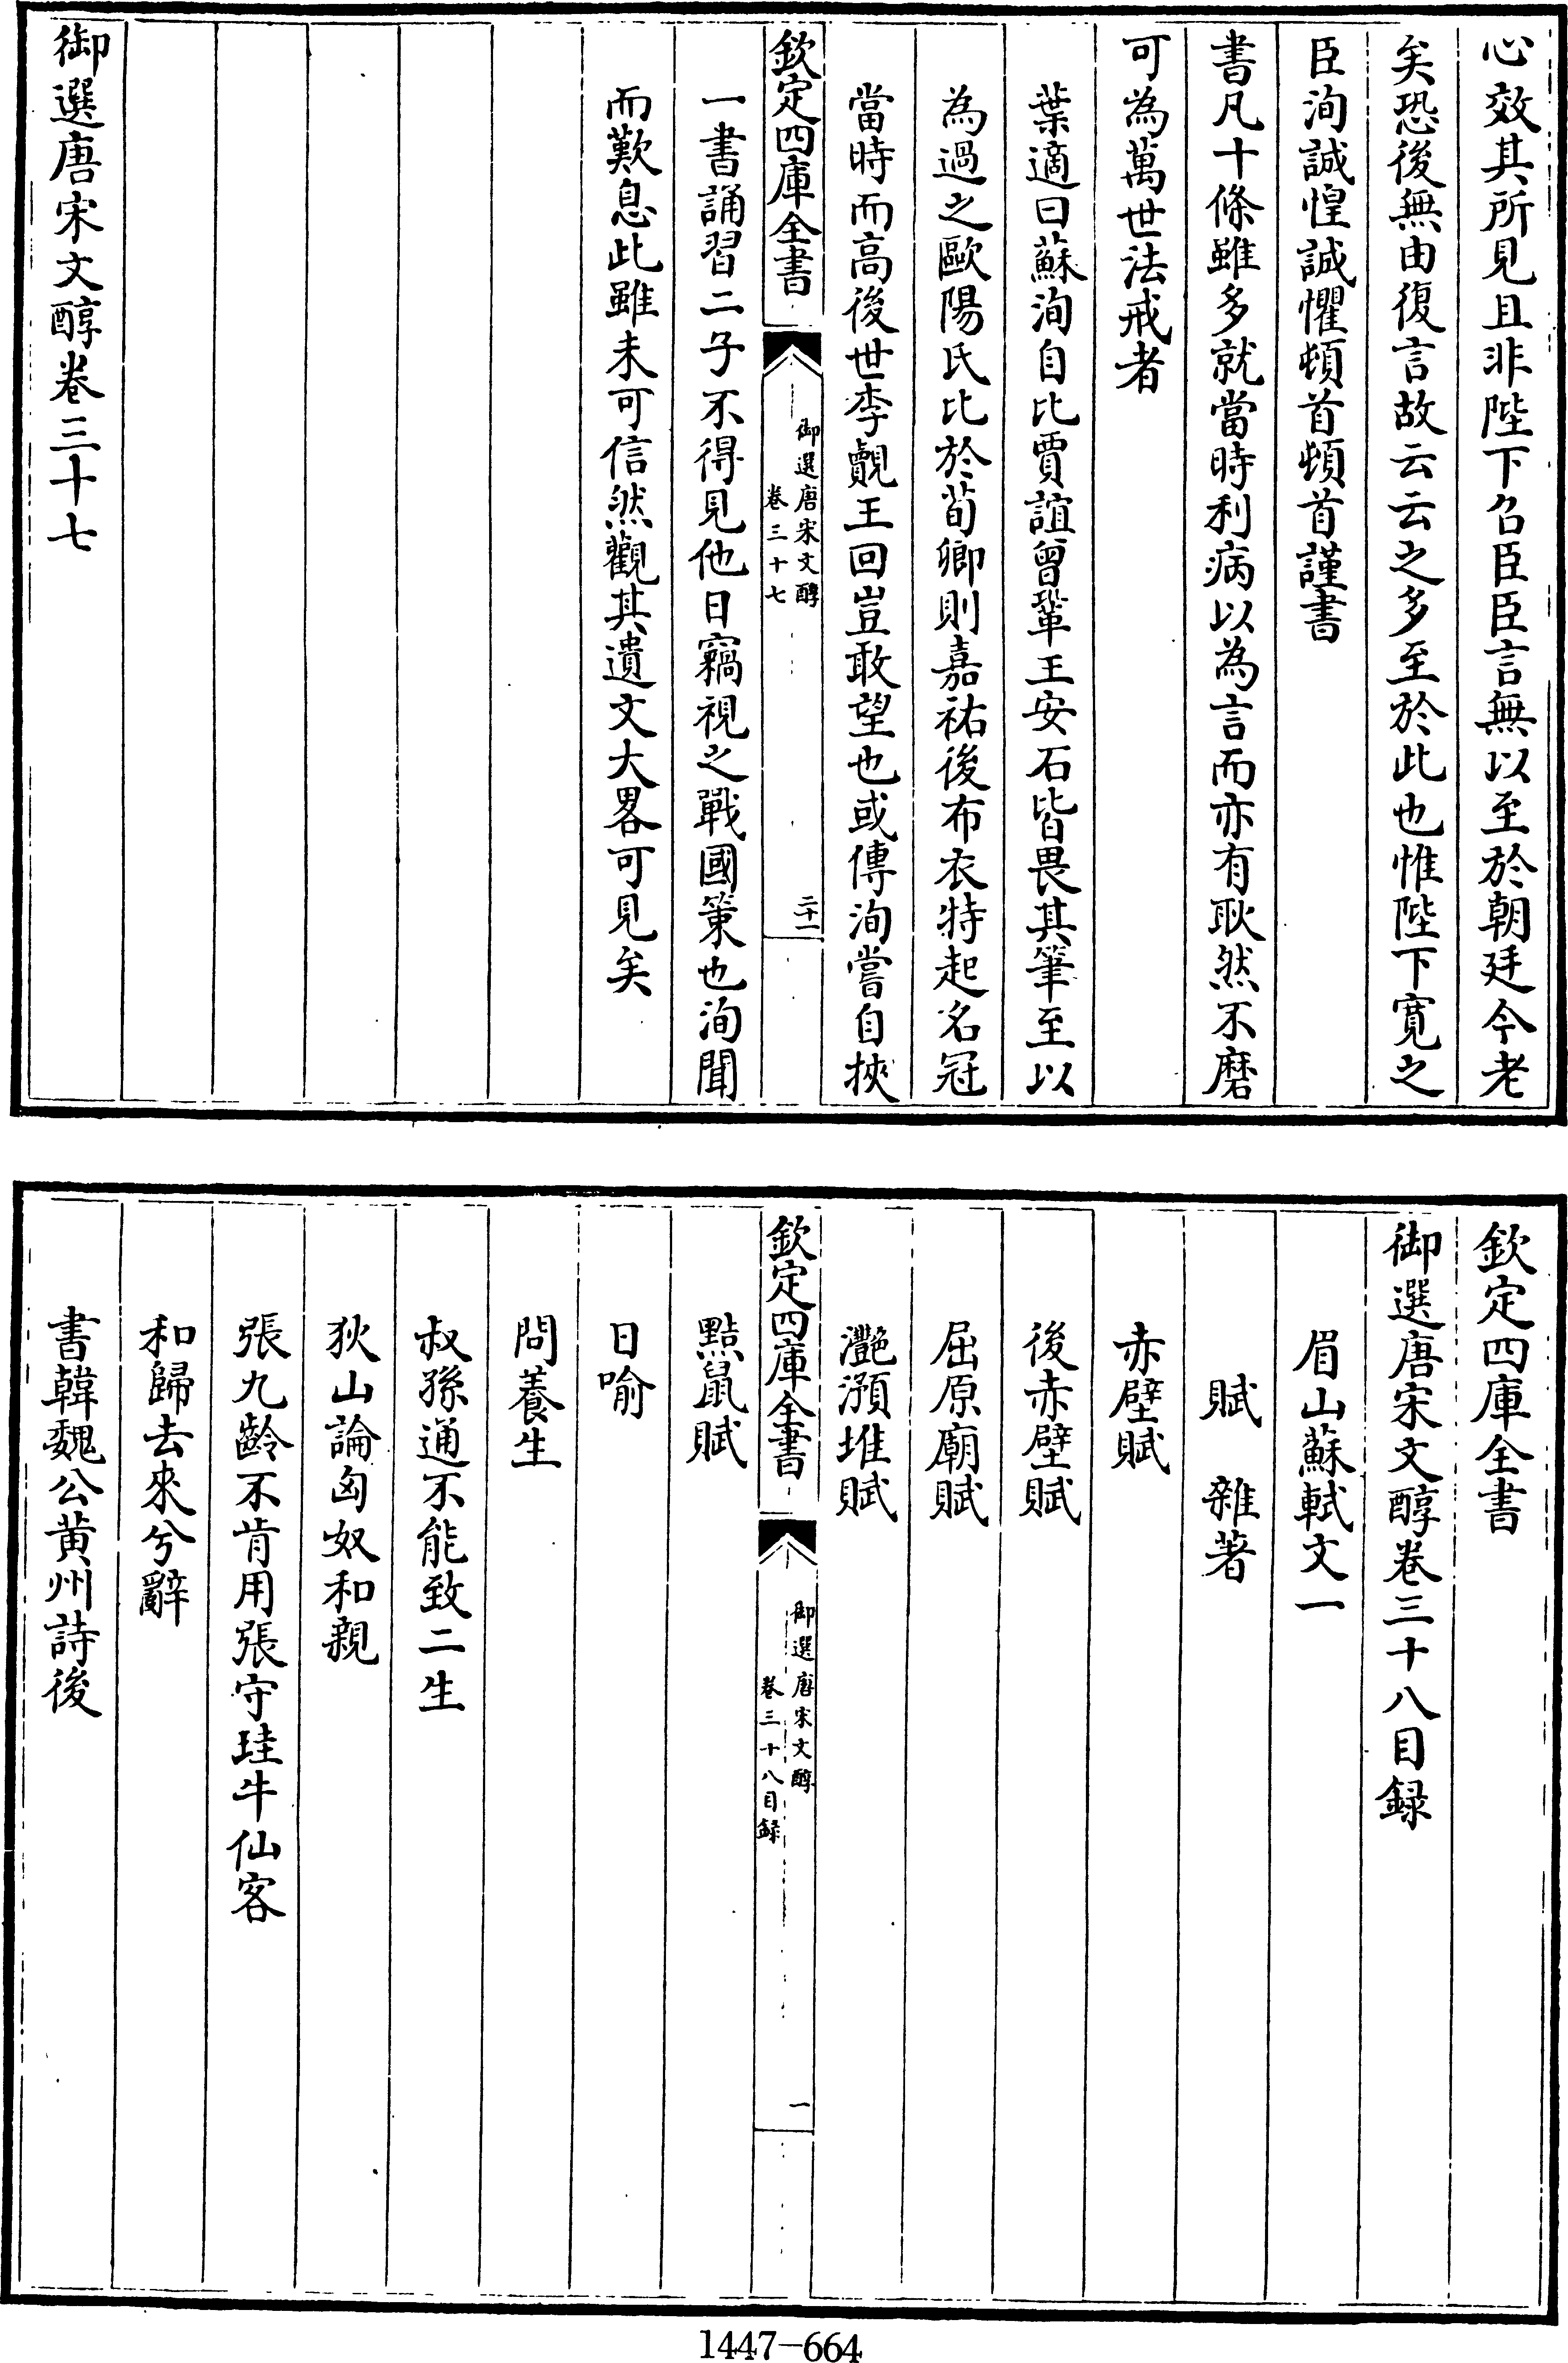 心效其所見且非陛下名臣臣言無以至於朝廷今老
矣恐後無由復言故云云之多至於此也惟陛下寛之
臣洵誠惶誠懼頓首頓首謹書
書凡十條雖多就當時利病以為言而亦有耿然不磨
可為萬世法戒者
葉適曰蘇洵自比賈誼曾鞏王安石皆畏其筆至以
為過之歐陽氏比於荀卿則嘉祐後布衣特起名冠
當時而高後世李覯王回豈敢望也或傳洵嘗自挾
欽定四庫全書
御選唐宋文醇
卷三十七
二十一
一書誦習二子不得見他日竊視之戰國策也洵聞
而歎息此雖未可信然觀其遺文大畧可見矣
御選唐宋文醇卷三十七
欽定四庫全書
御選唐宋文醇卷三十八目録
眉山蘇軾文一
賦 雜著
赤壁賦
後赤壁賦
屈原廟賦
灔澦堆賦
欽定四庫全書
御選唐宋文醇
卷三十八目録
一
黠鼠賦
日喻
問養生
叔孫通不能致二生
狄山論匈奴和親
張九齡不肯用張守珪牛仙客
和歸去來兮辭
書韓魏公黄州詩後
1447-664